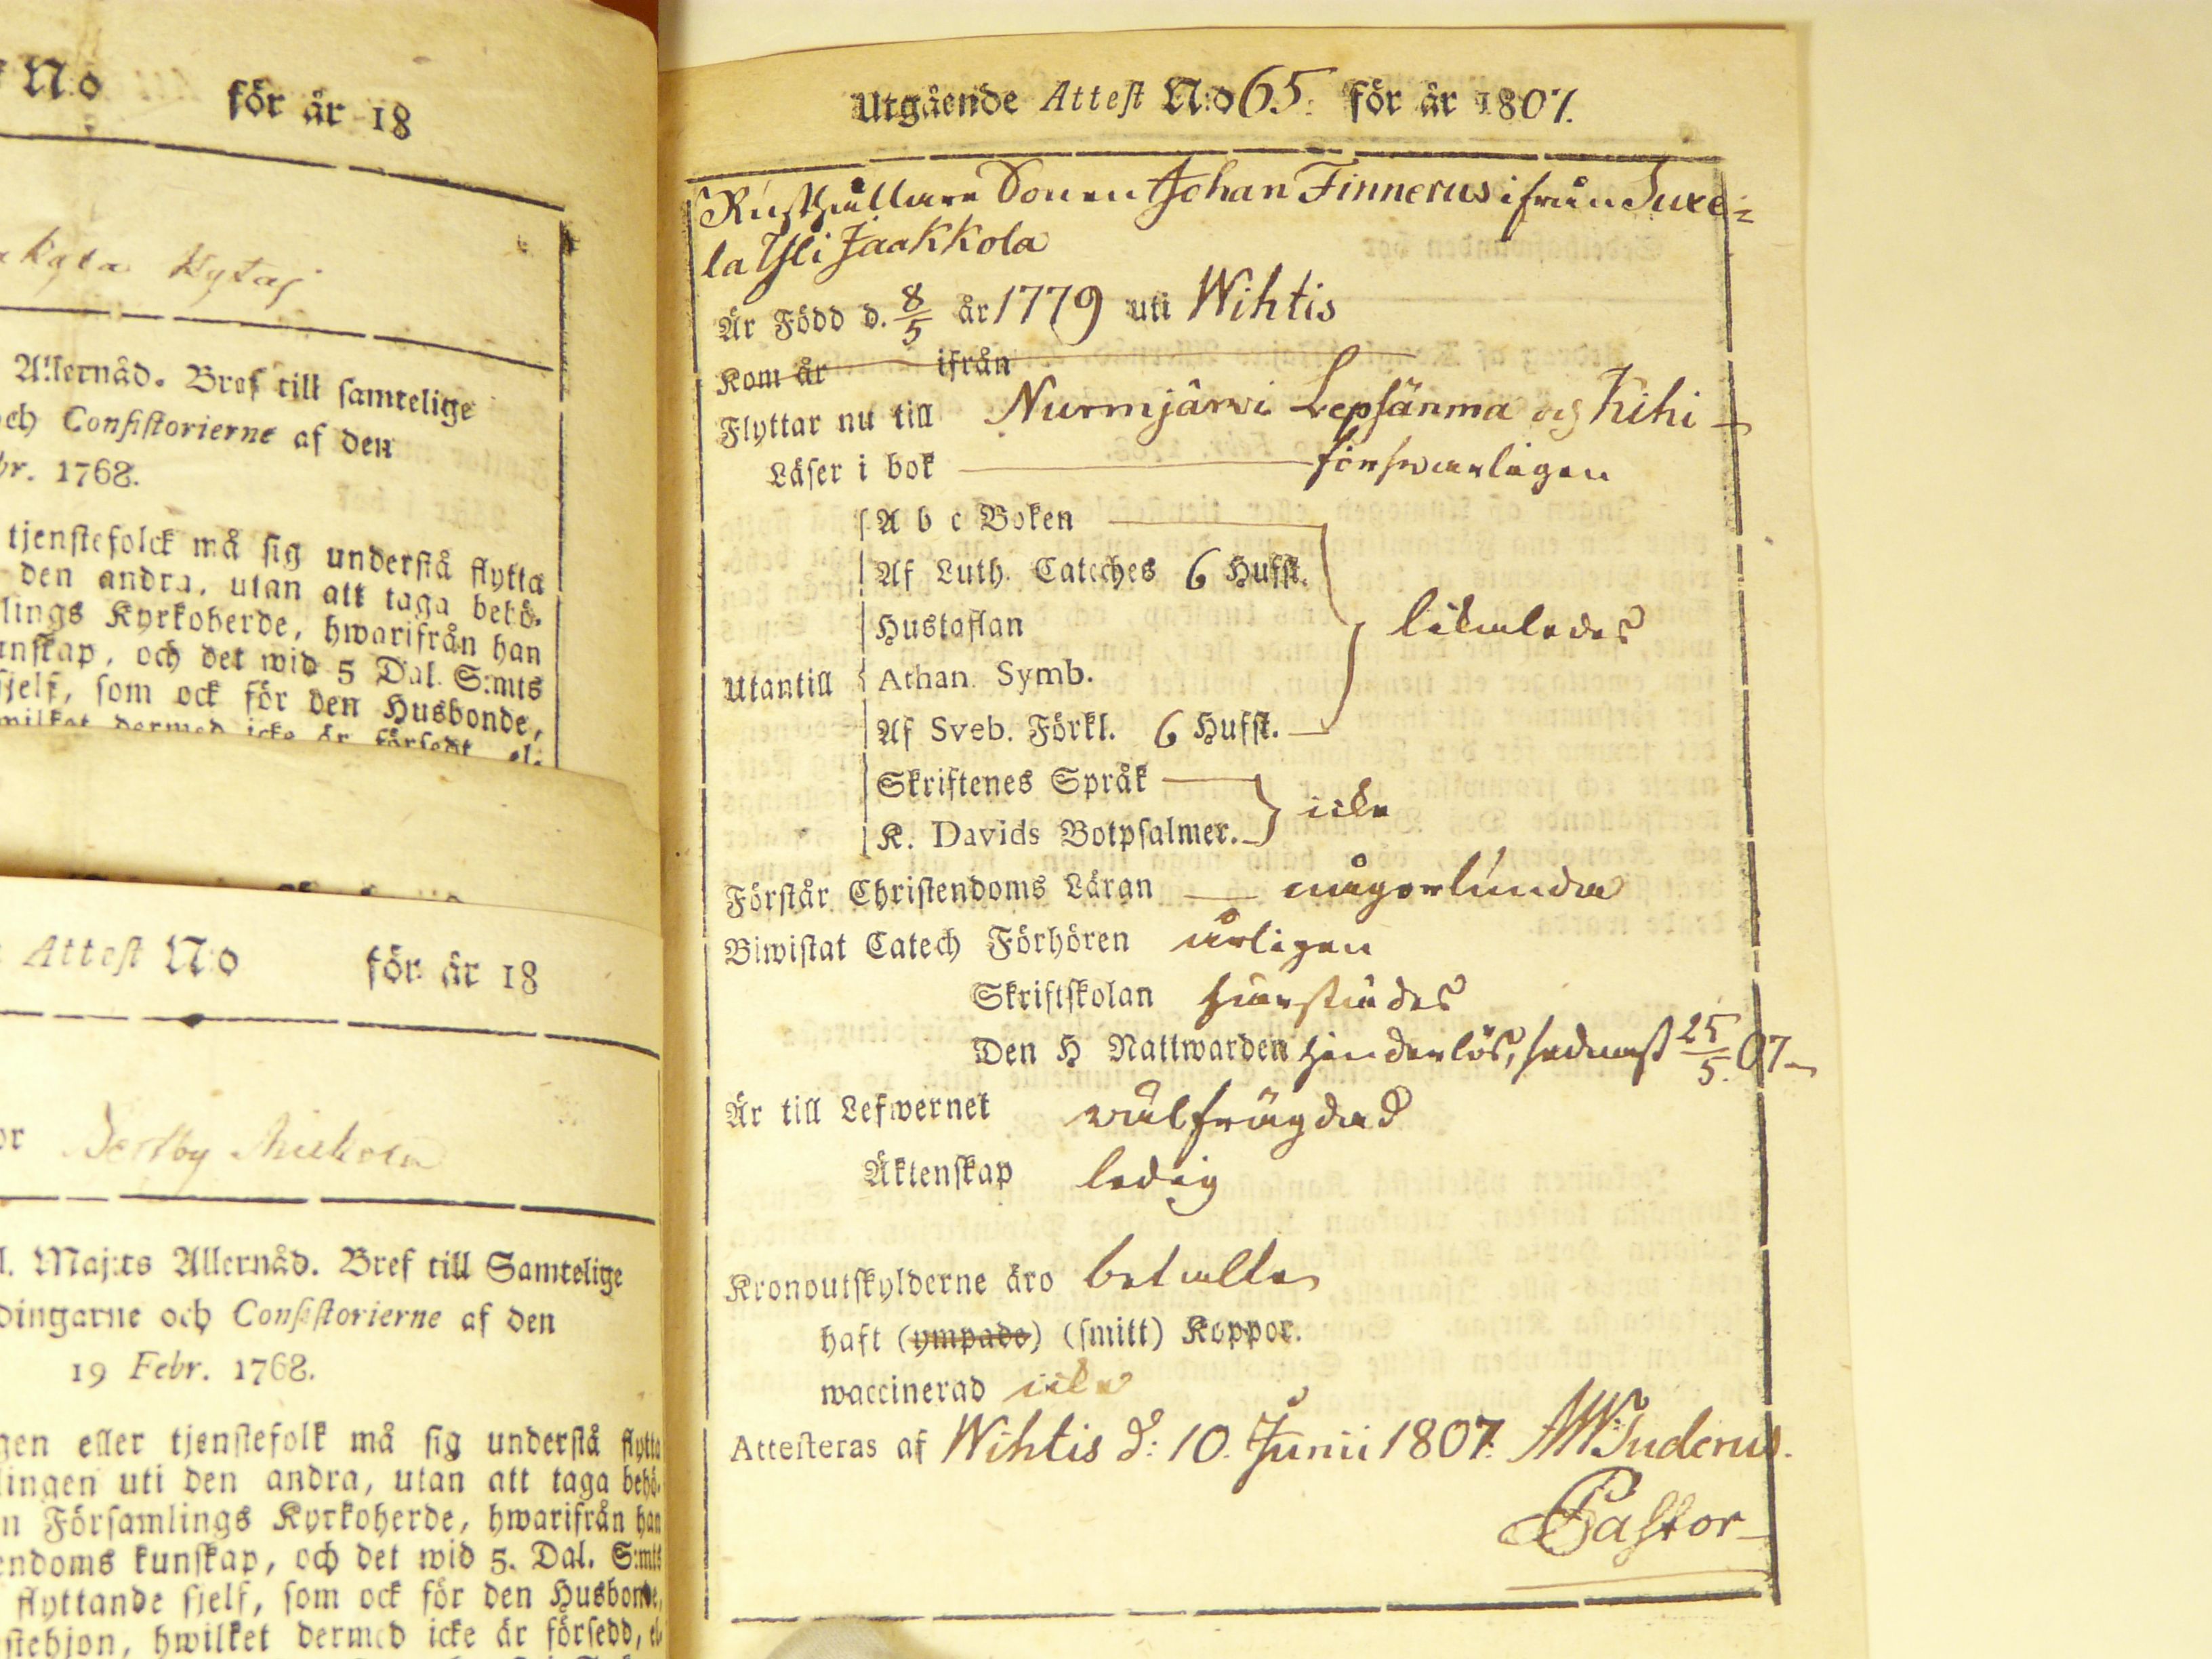 No för år 18
kyla Kytaj
Allernåd. Bref till samtelige
och Consistorierne af den
br. 1768.
tjenstefolck må sig understå flytta
den andra, utan att taga behö-
lings Kyrkoherde, hwarifrån han
unskap, och det wid 5 Dal. S:mts
sjelf, som ock för den Husbonde,
hwilket dermed icke är försedt, el-
Attest N:o för år 18
or
l. Maj:ts Allernåd. Bref till Samtelige
dingarne och Consistorierne af den
19 Febr. 1768.
gen eller tjenstefolk må sig understå flytta
lingen uti den andra, utan att taga behö-
n Församlings Kyrkoherde, hwarifrån han
endoms kunskap, och det wid 5. Dal. S:mts
flyttande sjelf, som ock för den Husbonde,
stehjon, hwilket dermed icke är försedd, el-
Utgående Attest N:o 65. för år 1807.
Rusthållare Sonen Johan Finnerus ifrån Tuxe=
la Yli Jaakkola
Är Född d. 8/5 år 1779 uti Wihtis
Kom år ifrån
Flyttar nu till Nurmjärwi Lepsänma og Kihi
Läser i bok förswarligen
A b c Boken
Af Luth. Cateches 6 Hufst.
Hustaflan likaledes
Utantill Athan. Symb.
Af Sveb. Förkl. 6 Hufst.
Skriftenes Språk
icke
K. Davids Botpsalmer.
Förstår Christendoms Läran någorlunda
Biwistat Catech Förhören årligen
Skriftskolan härstädes
Den H Nattwarden hinderlös, sednast 25/5. 07
Är till Lefwernet wälfrägdad
Äktenskap ledig
Kronoutskylderne äro betallte
haft (ympade) (smitt) Koppor.
waccinerad icke
Attesteras af Wihtis d: 10. Junii 1807. AW:Inderus.
Pastor